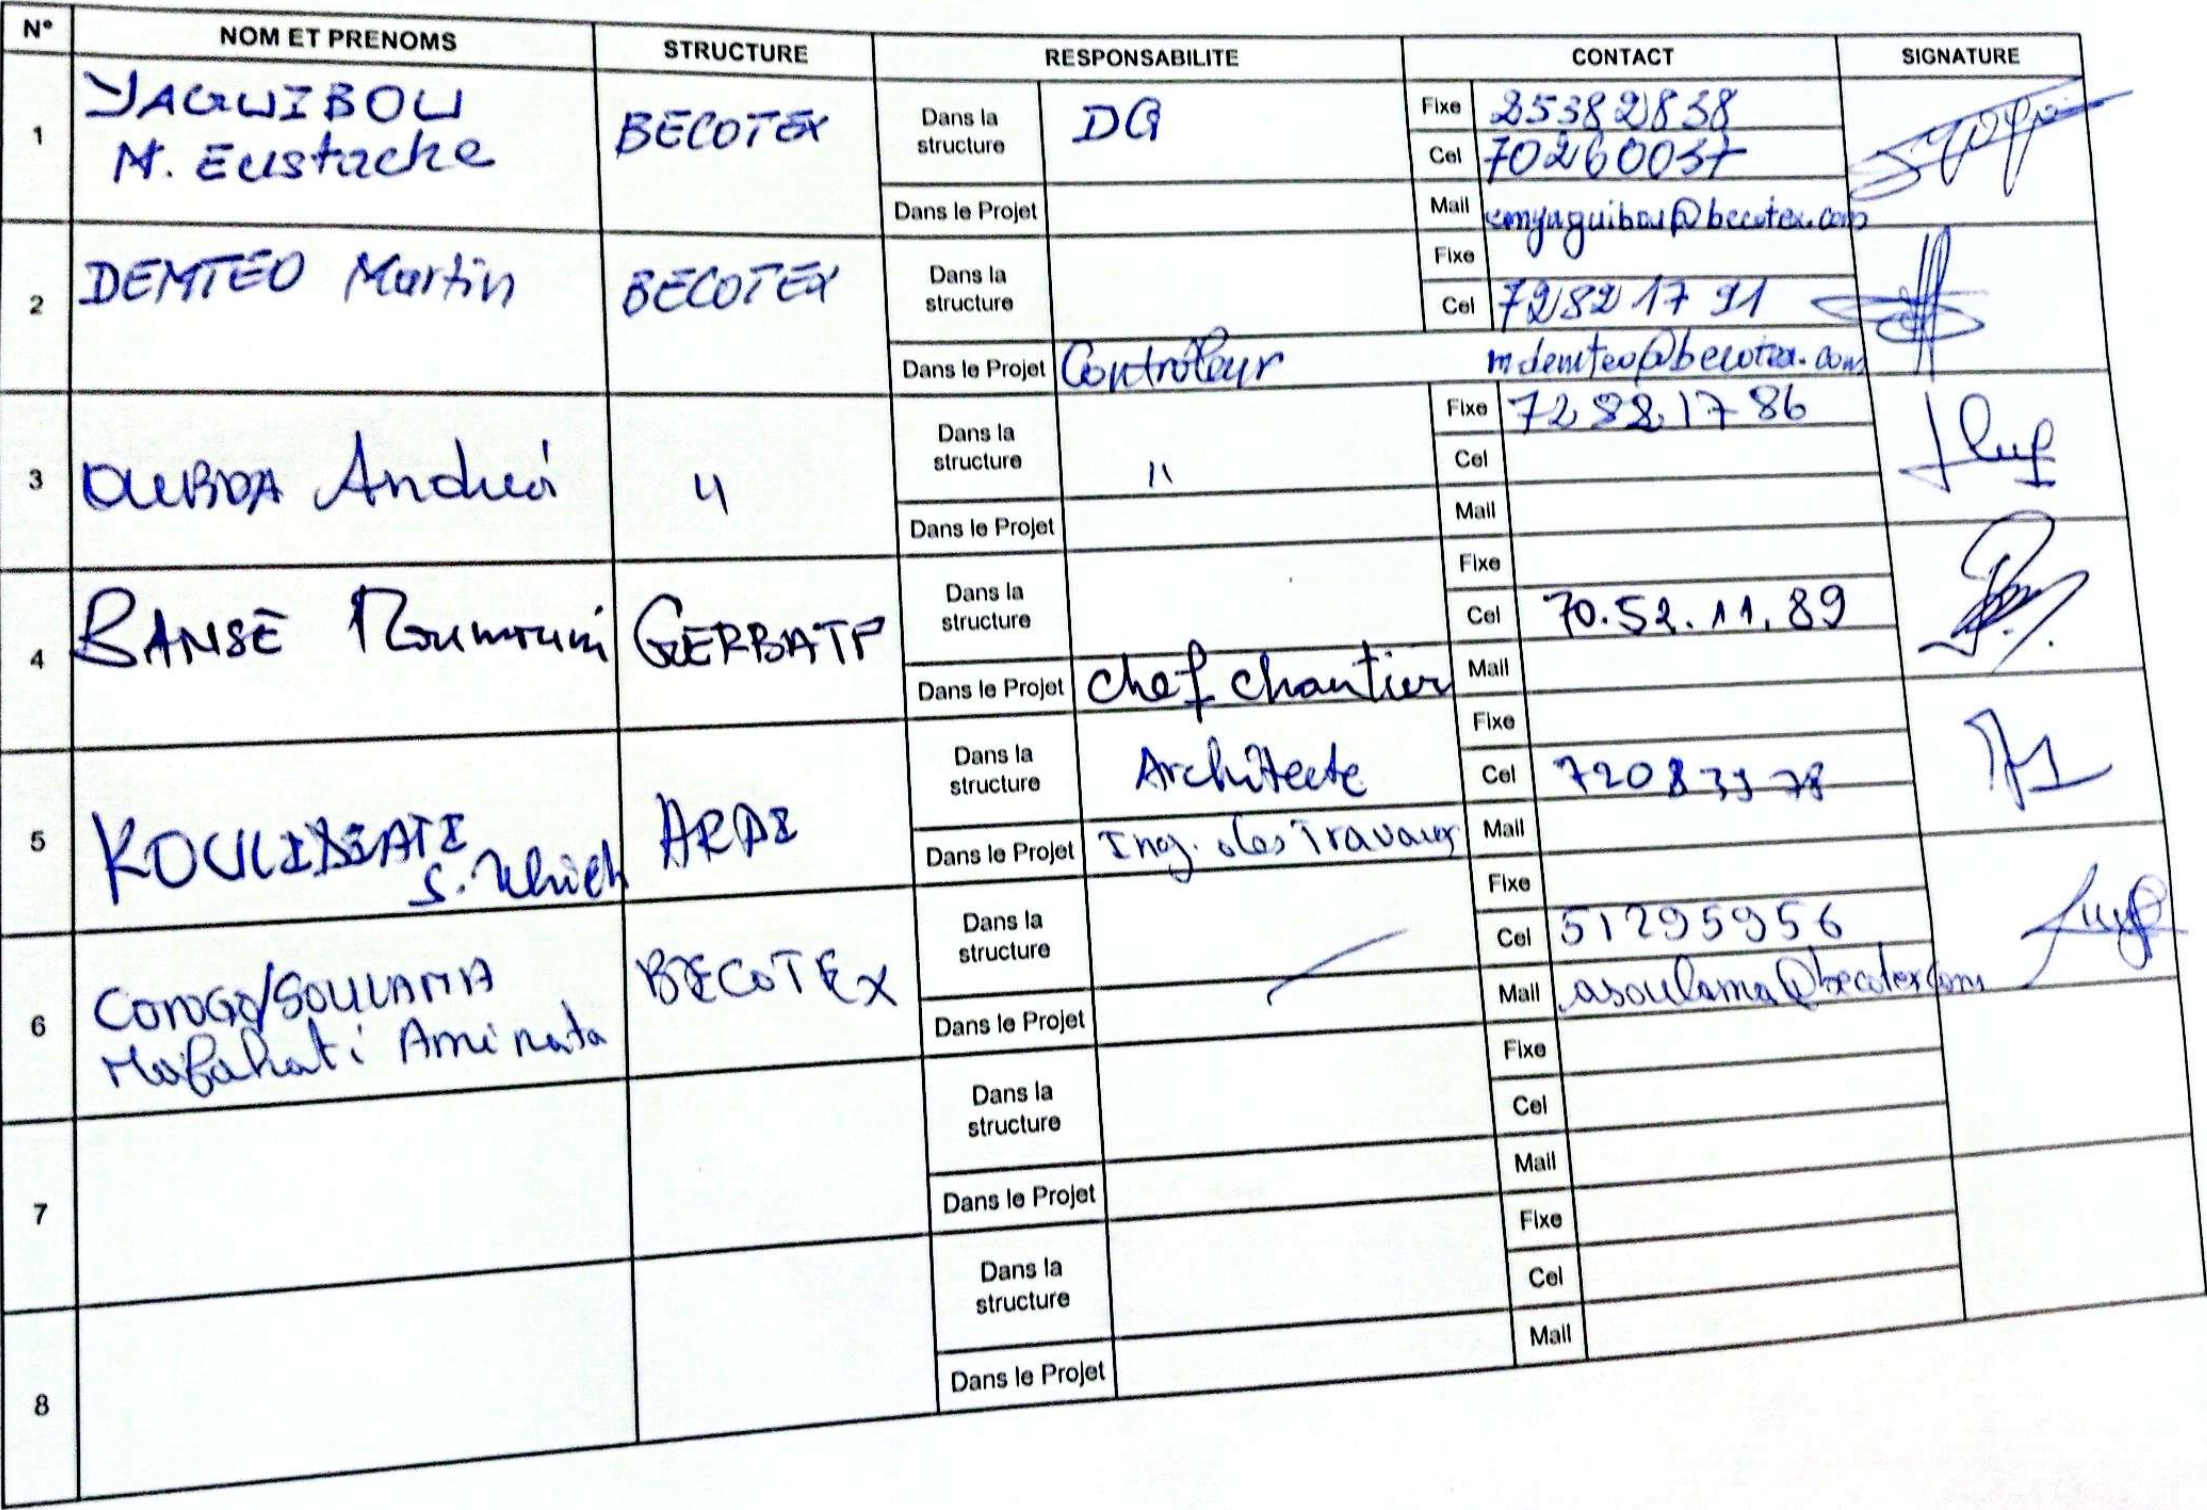 N° NOM ET PRENOMS STRUCTURE RESPONSABILITE CONTACT SIGNATURE
1 YAGUIBOU BECOTEX Dans la structure DG Fixe 25382838
N. Eustache Cel 70260037
Dans le Projet Mail emyaguibou@becotex.com
2 DEMTEO Martin BECOTEX Dans la structure Fixe
Cel 72821791
Dans le Projet Contrôleur mdemteo@becotex.com
3 OUBDA André " Dans la structure " Fixe 72 82 17 86
Cel
Dans le Projet Mail
4 BANSE Moumouni GERBATP Dans la structure Fixe
Cel 70.52.11.89
Dans le Projet chef chantier Mail
5 KOULIDIATI ARDI Dans la structure Architecte Fixe
S. Ulrich Cel
Dans le Projet Ing. des Travaux Mail
6 CONGO/SOULAMA BECOTEX Dans la structure Fixe
Aminata Cel 51295956
Dans le Projet Mail asoulama@becotex.com
7 Dans la structure Fixe
Cel
Dans le Projet Mail
8 Dans la structure Fixe
Cel
Dans le Projet Mail